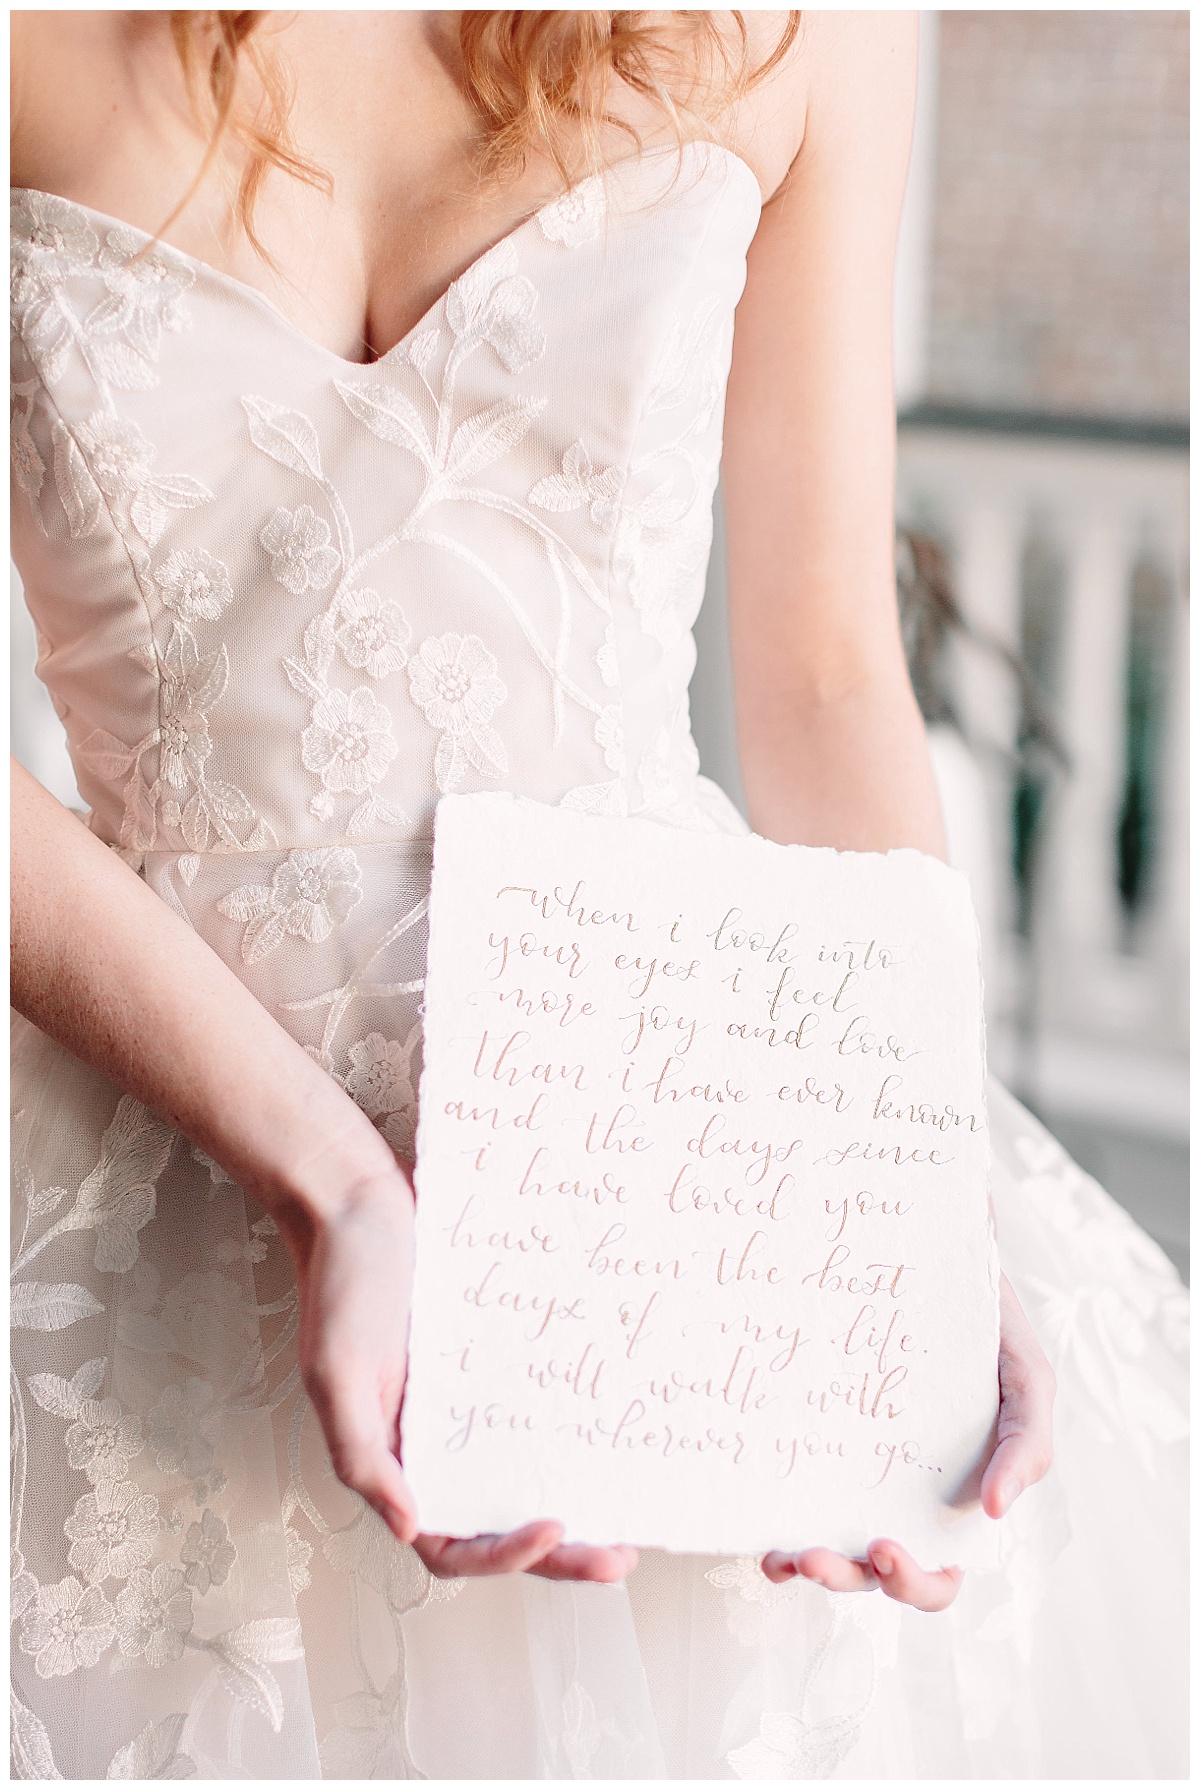 when i look into
your eyes i feel
more joy and love
than i have ever known
and the days since
i have loved you
have been the best
days of my life.
i will walk with
you wherever you go...